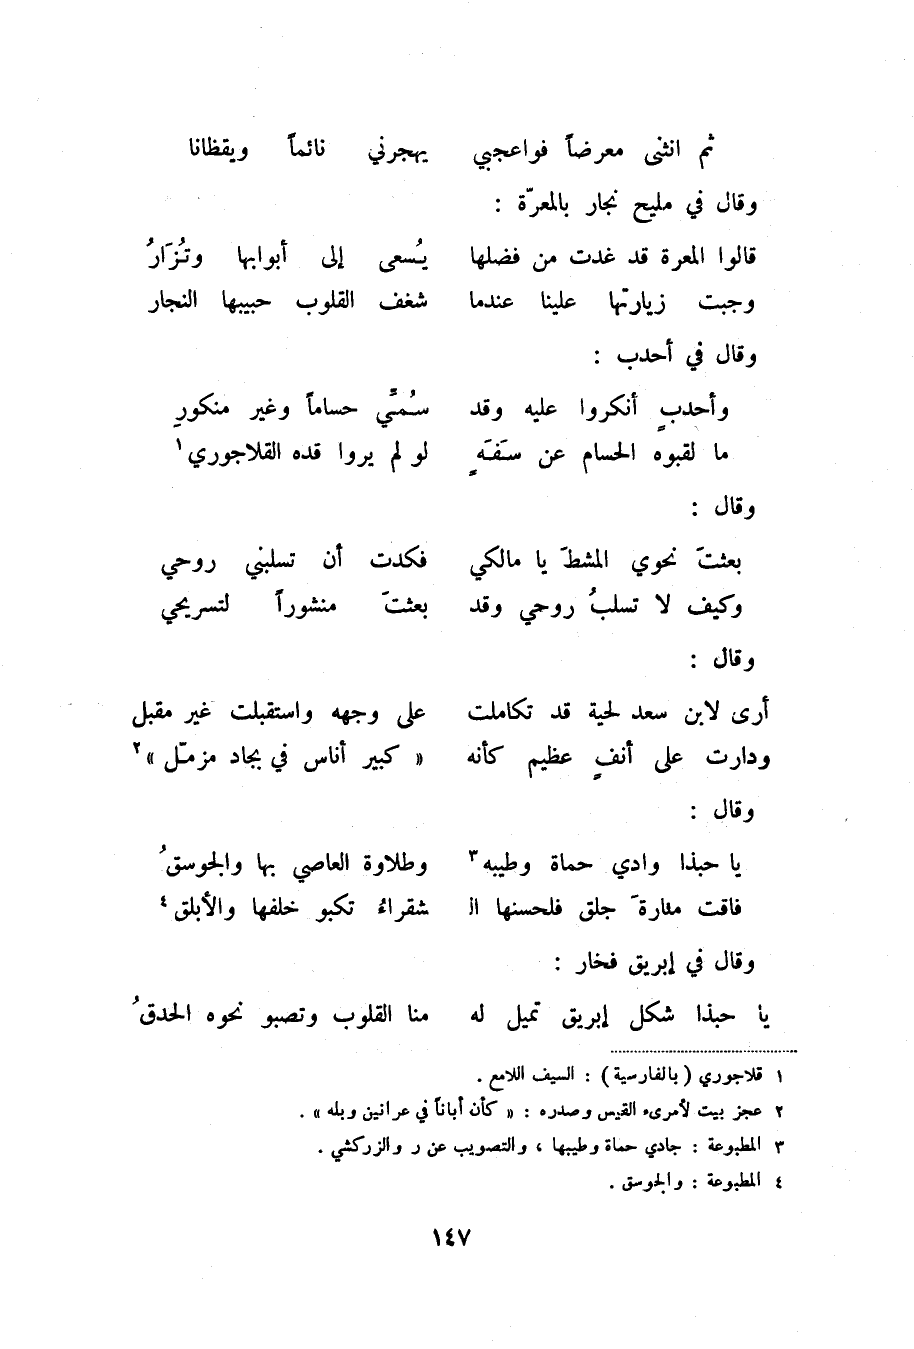 ثم انثنى معرضاً فواعجبي يهجرني نائماً ويقظانا
وقال في مليح نجار بالمعرّة :
قالوا المعرة قد غدت من فضلها يُسعى إلى أبوابها وتُزَارُ
وجبت زيارتها علينا عندما شغف القلوب حبيبها النجار
وقال في أحدب :
وأحدبٍ أنكروا عليه وقد سُمّي حساماً وغير منكورِ
ما لقبوه الحسام عن سَفَهٍ لو لم يروا قده القلاجوري١
وقال :
بعثتَ نحوي المشطَ يا مالكي فكدت أن تسلبني روحي
وكيف لا تسلبُ روحي وقد بعثتَ منشوراً لتسريحي
وقال :
أرى لابن سعد لحية قد تكاملت على وجهه واستقبلت غير مقبل
ودارت على أنفٍ عظيم كأنه « كبير أناس في بجاد مزمّل »٢
وقال :
يا حبذا وادي حماة وطيبه٣ وطلاوة العاصي بها والجوسقُ
فاقت منارةَ جلق فلحسنها الـ شقراءُ تكبو خلفها والأبلق٤
وقال في إبريق فخار :
يا حبذا شكل إبريق تميل له منا القلوب وتصبو نحوه الحدقُ
١ قلاجوري (بالفارسية) : السيف اللامع .
٢ عجز بيت لأمرىء القيس وصدره : « كأن أباناً في عرانين وبله » .
٣ المطبوعة : جادي حماة وطيبها ، والتصويب عن ر والزركشي .
٤ المطبوعة : والجوسق .
١٤٧